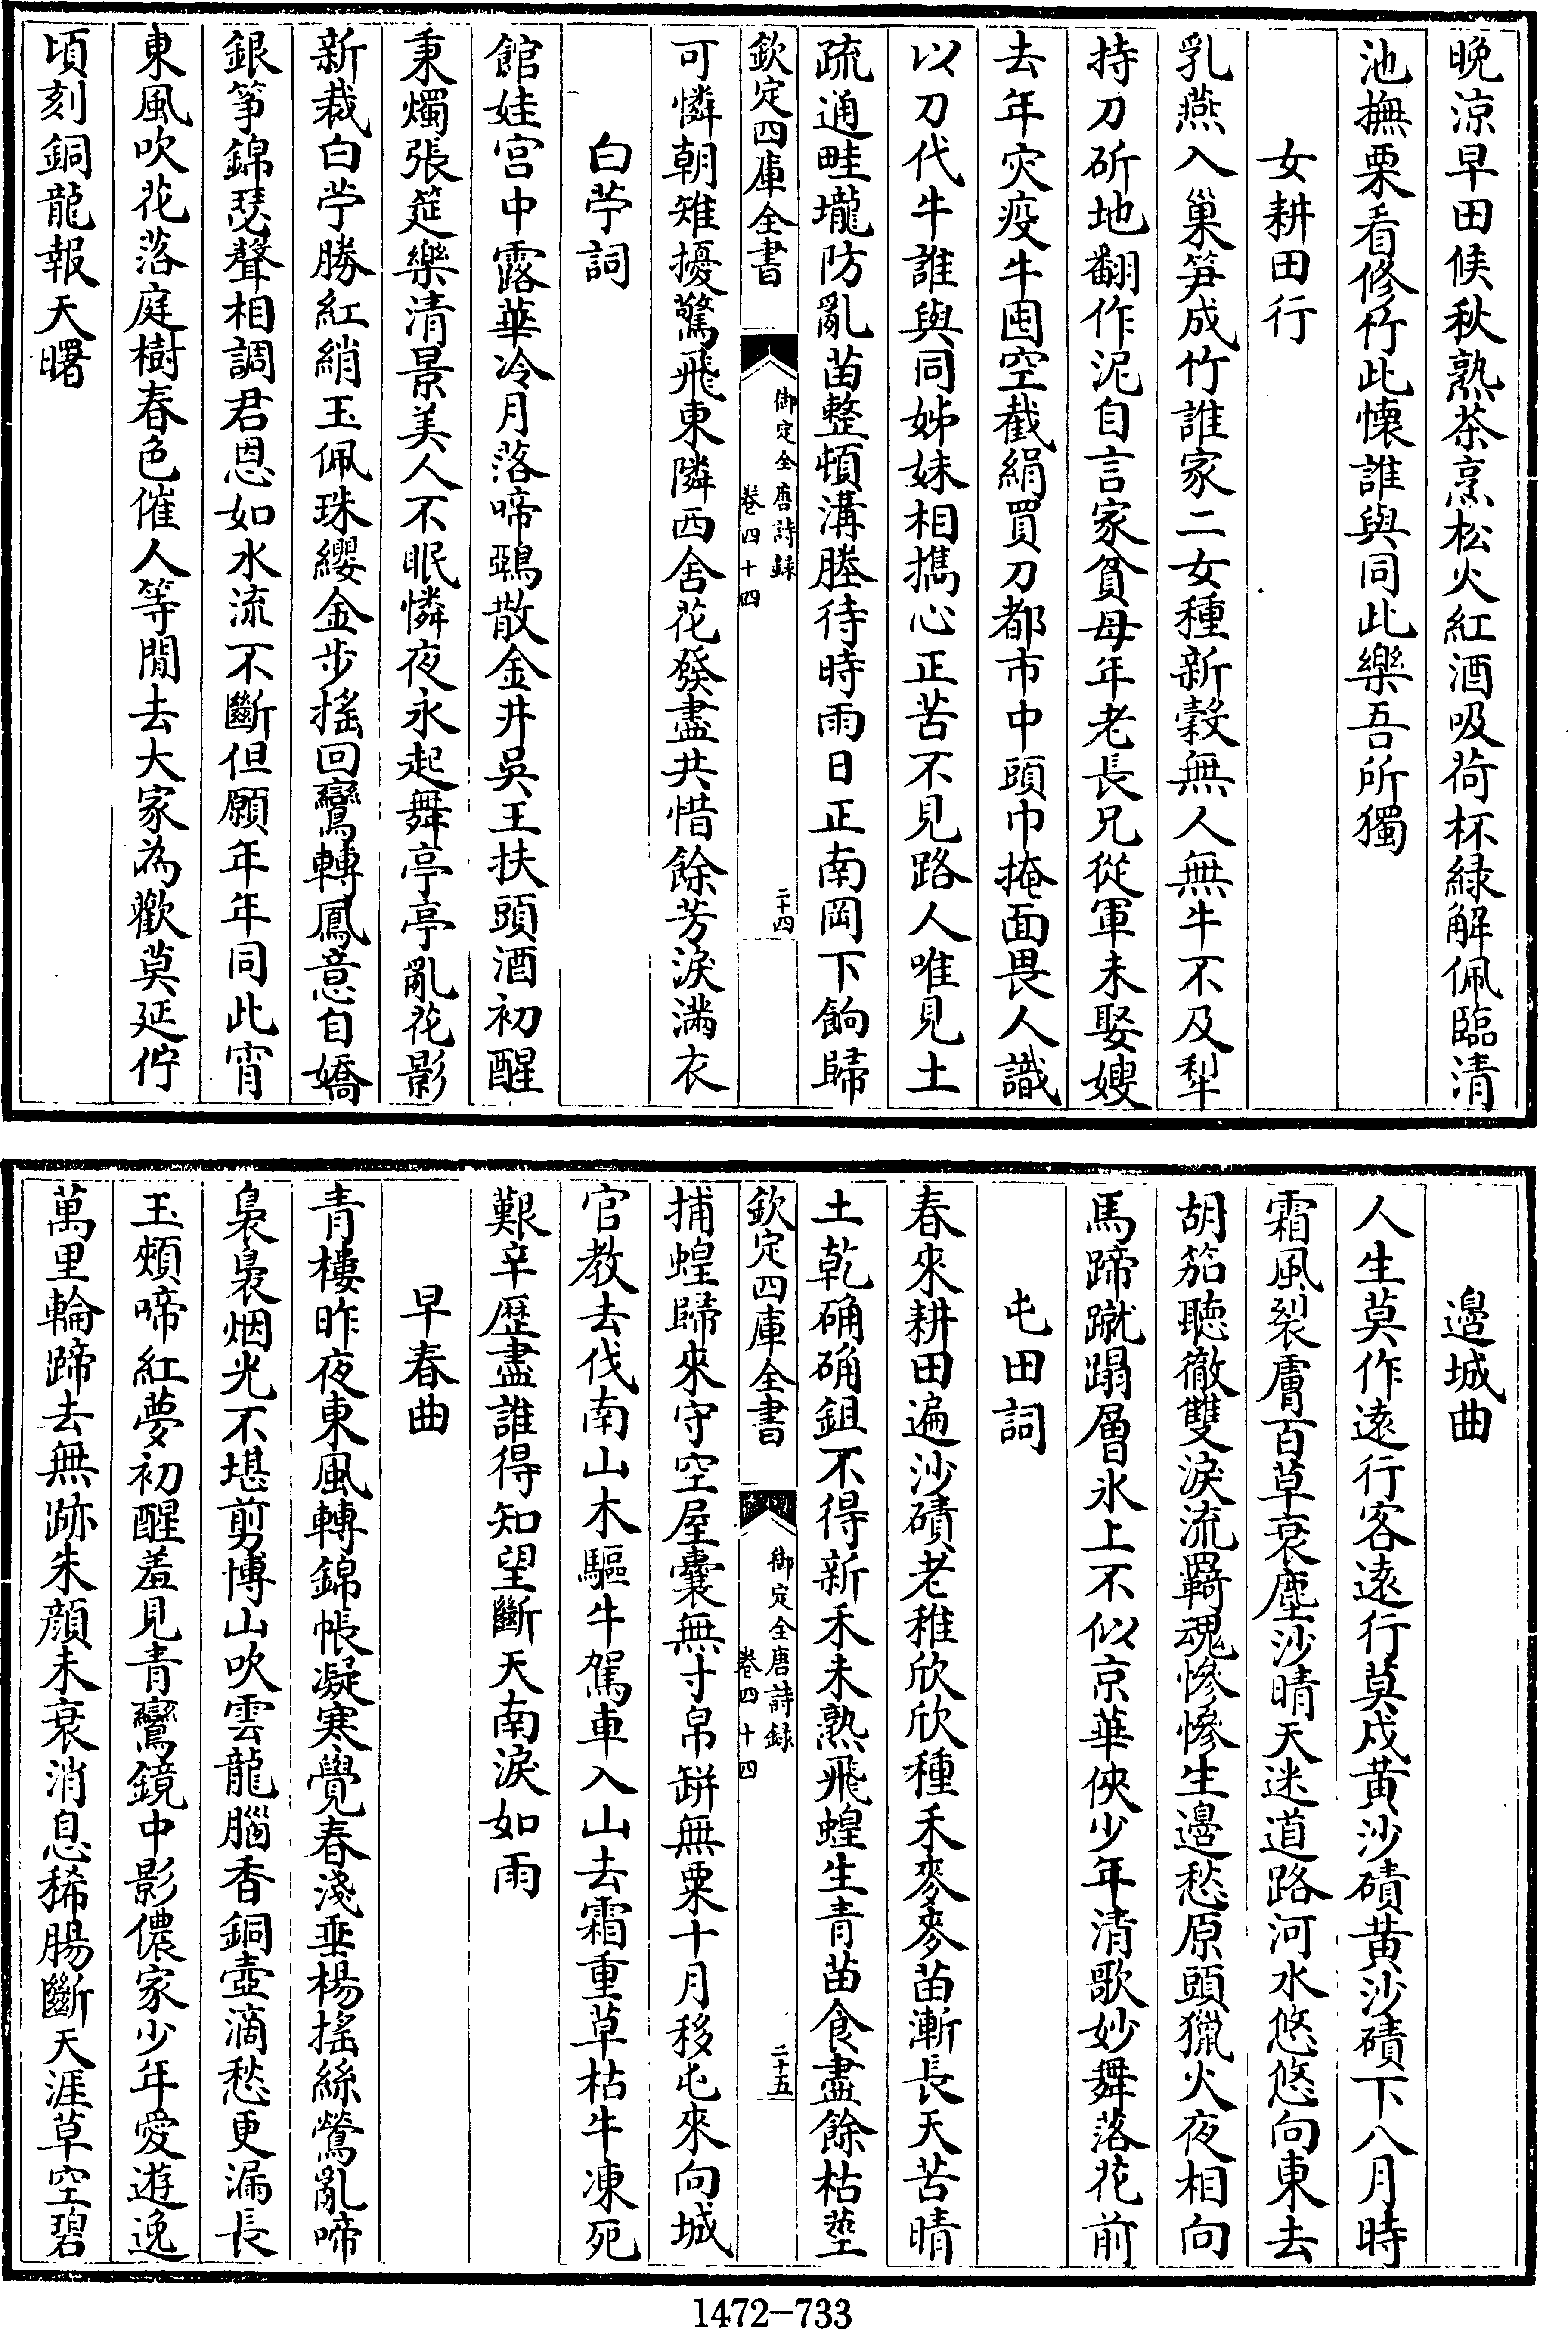 晚涼早田候秋熟茶烹松火紅酒吸荷杯緑解佩臨清
池撫栗看修竹此懷誰與同此樂吾所獨
女耕田行
乳燕入巢笋成竹誰家二女種新穀無人無牛不及犁
持刀斫地翻作泥自言家貧母年老長兄從軍未娶嫂
去年灾疫牛囤空截絹買刀都市中頭巾掩面畏人識
以刀代牛誰與同姊妹相擕心正苦不見路人唯見土
疏通畦壠防亂苗整頓溝塍待時雨日正南岡下餉歸
欽定四庫全書
御定全唐詩録
卷四十四
二十四
可憐朝雉擾驚飛東隣西舍花發盡共惜餘芳淚滿衣
白苧詞
館娃宫中露華冷月落啼鵶散金井吳王扶頭酒初醒
秉燭張筵樂清景美人不眠憐夜永起舞亭亭亂花影
新裁白苧勝紅綃玉佩珠纓金步搖回鸞轉鳳意自嬌
銀筝錦瑟聲相調君恩如水流不斷但願年年同此宵
東風吹花落庭樹春色催人等閒去大家為歡莫延佇
頃刻銅龍報天曙
邉城曲
人生莫作逺行客逺行莫戍黄沙磧黄沙磧下八月時
霜風裂膚百草衰塵沙晴天迷道路河水悠悠向東去
胡笳聽徹雙淚流羇魂慘慘生邉愁原頭獵火夜相向
馬蹄蹴蹋層氷上不似京華俠少年清歌妙舞落花前
屯田詞
春來耕田遍沙磧老稚欣欣種禾麥麥苗漸長天苦晴
土乾确确鉏不得新禾未熟飛蝗生青苗食盡餘枯莖
欽定四庫全書
御定全唐詩録
卷四十四
二十五
捕蝗歸來守空屋囊無寸帛缾無粟十月移屯來向城
官教去伐南山木驅牛駕車入山去霜重草枯牛凍死
艱辛歴盡誰得知望斷天南淚如雨
早春曲
青樓昨夜東風轉錦帳凝寒覺春淺垂楊搖絲鶯亂啼
裊裊烟光不堪剪博山吹雲龍腦香銅壺滴愁更漏長
玉頰啼紅夢初醒羞見青鸞鏡中影儂家少年愛遊逸
萬里輪蹄去無跡朱顔未衰消息稀腸斷天涯草空碧
1472-733